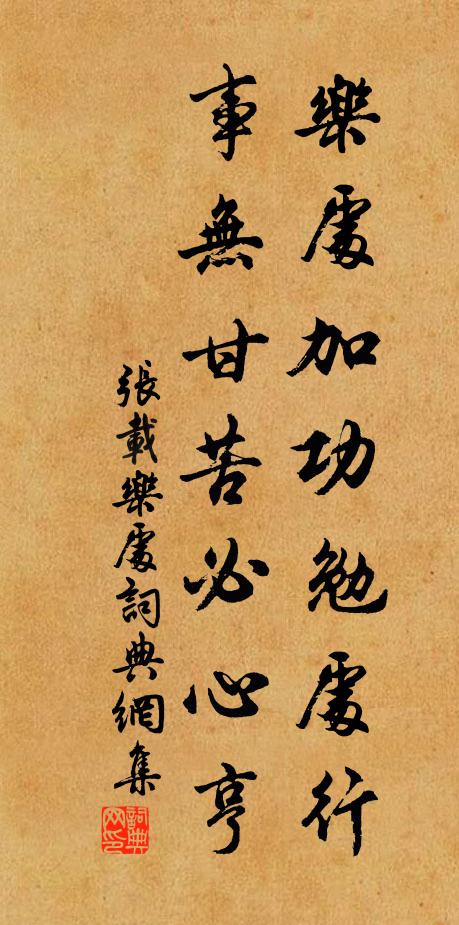 樂處加功勉處行
事無甘苦必心亨
張載樂處詞典網集
詞典网印